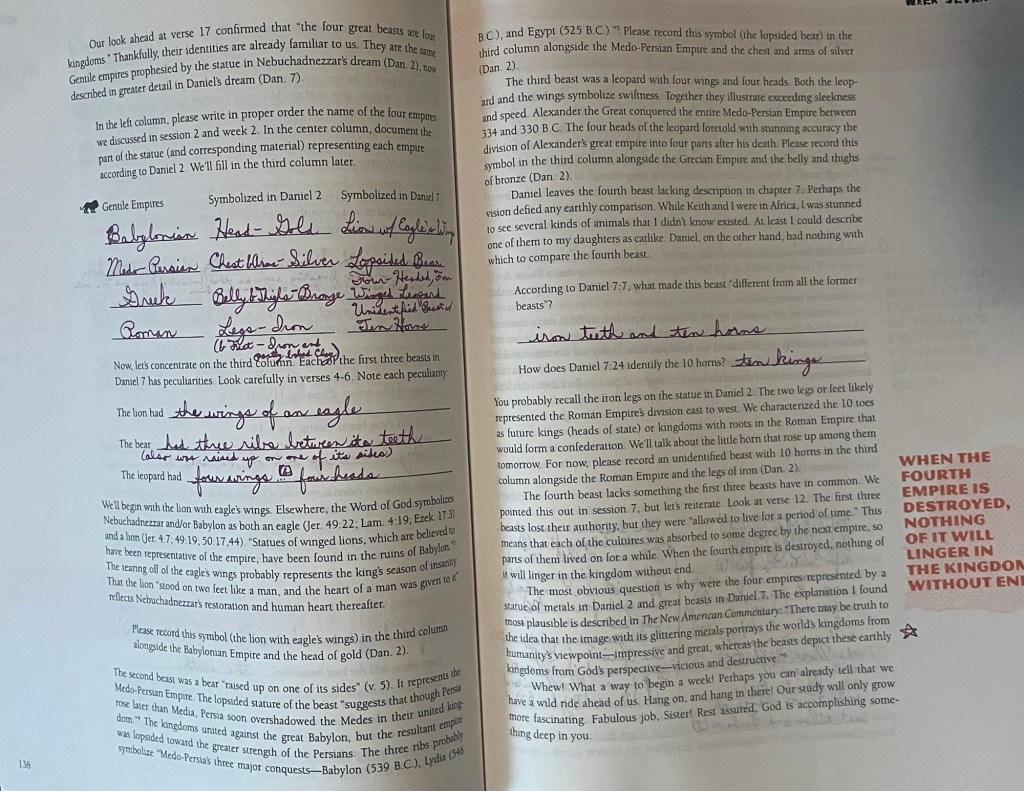 Our look ahead at verse 17 confirmed that "the four great beasts are four
kingdoms." Thankfully, their identities are already familiar to us. They are the same
Gentile empires prophesied by the statue in Nebuchadnezzar's dream (Dan. 2), now
described in greater detail in Daniel's dream (Dan. 7).
In the left column, please write in proper order the name of the four empires
we discussed in session 2 and week 2. In the center column, document the
part of the statue (and corresponding material) representing each empire
according to Daniel 2. We'll fill in the third column later.
Gentile Empires Symbolized in Daniel 2 Symbolized in Daniel 7
Babylonian Head - Gold Lion w/ Eagle's Wings
Medo-Persian Chest & Arms - Silver Lopsided Bear
Four-Headed, Four
Greek Belly & Thighs - Bronze Winged Leopard
Unidentified Beast w/
Roman Legs - Iron Ten Horns
(& Feet - Iron and
partly baked Clay)
Now, let's concentrate on the third column. Each of the first three beasts in
Daniel 7 has peculiarities. Look carefully in verses 4-6. Note each peculiarity:
The lion had the wings of an eagle
The bear had three ribs between its teeth
(also was raised up on one of its sides)
The leopard had four wings & four heads
We'll begin with the lion with eagle's wings. Elsewhere, the Word of God symbolizes
Nebuchadnezzar and/or Babylon as both an eagle (Jer. 49:22; Lam. 4:19; Ezek. 17:3)
and a lion (Jer. 4:7; 49:19; 50:17,44). "Statues of winged lions, which are believed to
have been representative of the empire, have been found in the ruins of Babylon."
The tearing off of the eagle's wings probably represents the king's season of insanity.
That the lion "stood on two feet like a man, and the heart of a man was given to it"
reflects Nebuchadnezzar's restoration and human heart thereafter.
Please record this symbol (the lion with eagle's wings) in the third column
alongside the Babylonian Empire and the head of gold (Dan. 2).
The second beast was a bear "raised up on one of its sides" (v. 5). It represents the
Medo-Persian Empire. The lopsided stature of the beast "suggests that though Persia
rose later than Media, Persia soon overshadowed the Medes in their united king-
dom."4 The kingdoms united against the great Babylon, but the resultant empire
was lopsided toward the greater strength of the Persians. The three ribs probably
symbolize "Medo-Persia's three major conquests—Babylon (539 B.C.), Lydia (546
138
B.C.), and Egypt (525 B.C.)."5 Please record this symbol (the lopsided bear) in the
third column alongside the Medo-Persian Empire and the chest and arms of silver
(Dan. 2).
The third beast was a leopard with four wings and four heads. Both the leop-
ard and the wings symbolize swiftness. Together they illustrate exceeding sleekness
and speed. Alexander the Great conquered the entire Medo-Persian Empire between
334 and 330 B.C. The four heads of the leopard foretold with stunning accuracy the
division of Alexander's great empire into four parts after his death. Please record this
symbol in the third column alongside the Grecian Empire and the belly and thighs
of bronze (Dan. 2).
Daniel leaves the fourth beast lacking description in chapter 7. Perhaps the
vision defied any earthly comparison. While Keith and I were in Africa, I was stunned
to see several kinds of animals that I didn't know existed. At least I could describe
one of them to my daughters as catlike. Daniel, on the other hand, had nothing with
which to compare the fourth beast.
According to Daniel 7:7, what made this beast "different from all the former
beasts"?
iron teeth and ten horns
How does Daniel 7:24 identify the 10 horns? ten kings
You probably recall the iron legs on the statue in Daniel 2. The two legs or feet likely
represented the Roman Empire's division east to west. We characterized the 10 toes
as future kings (heads of state) or kingdoms with roots in the Roman Empire that
would form a confederation. We'll talk about the little horn that rose up among them
tomorrow. For now, please record an unidentified beast with 10 horns in the third
column alongside the Roman Empire and the legs of iron (Dan. 2).
The fourth beast lacks something the first three beasts have in common. We
pointed this out in session 7, but let's reiterate. Look at verse 12. The first three
beasts lost their authority, but they were "allowed to live for a period of time." This
means that each of the cultures was absorbed to some degree by the next empire, so
parts of them lived on for a while. When the fourth empire is destroyed, nothing of
it will linger in the kingdom without end.
The most obvious question is why were the four empires represented by a
statue of metals in Daniel 2 and great beasts in Daniel 7. The explanation I found
most plausible is described in The New American Commentary: "There may be truth to
the idea that the image with its glittering metals portrays the world's kingdoms from
humanity's viewpoint—impressive and great, whereas the beasts depict these earthly
kingdoms from God's perspective—vicious and destructive."6
Whew! What a way to begin a week! Perhaps you can already tell that we
have a wild ride ahead of us. Hang on, and hang in there! Our study will only grow
more fascinating. Fabulous job, Sister! Rest assured, God is accomplishing some-
thing deep in you.
WHEN THE
FOURTH
EMPIRE IS
DESTROYED,
NOTHING
OF IT WILL
LINGER IN
THE KINGDOM
WITHOUT END